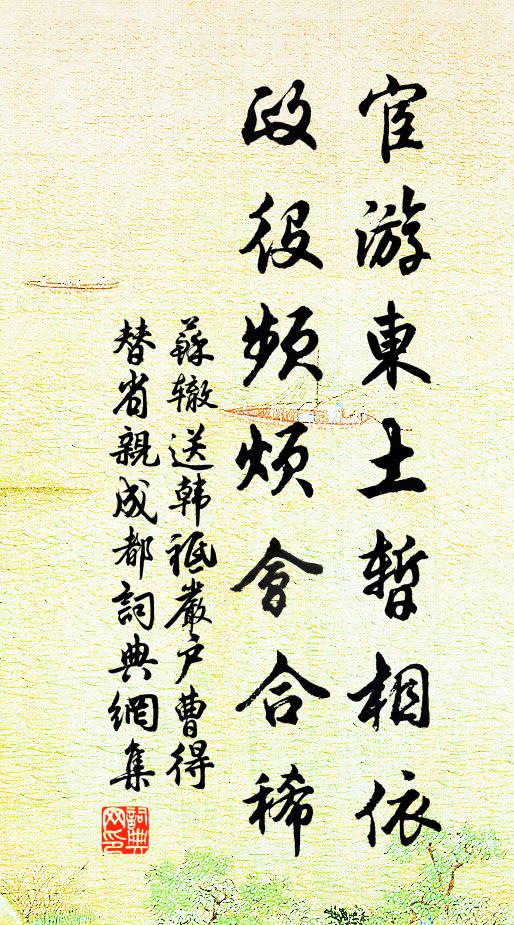 宦游東土暫相依
政役频烦會合稀
蘇辙送韩祗嚴户曹得
替省親成都詞典網集
詞典网印